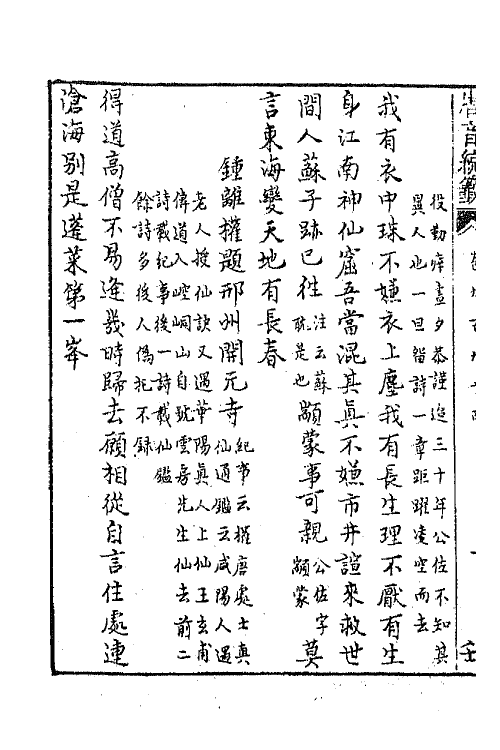 唐音統籤
役勤瘁晝夕恭謹迨三十年公佐不知其
異人也一旦留詩一章距躍凌空而去
我有衣中珠不嫌衣上塵我有長生理不厭有生
身江南神仙窟吾當混其真不嫌市井諠來救世
間人蘇子跡已往注云蘇耽是也顓蒙事可親公佐字顓蒙莫
言東海變天地有長春
鍾離權題邢州開元寺紀事云權唐處士真仙通鑑云咸陽人遇
老人授仙訣又遇華陽真人上仙王玄甫
傳道入崆峒山自號雲房先生仙去前二
詩載紀事後一詩載仙鑑
餘詩多後人偽托不錄
得道高僧不易逢幾時歸去願相從自言住處連
滄海別是蓬萊第一峯